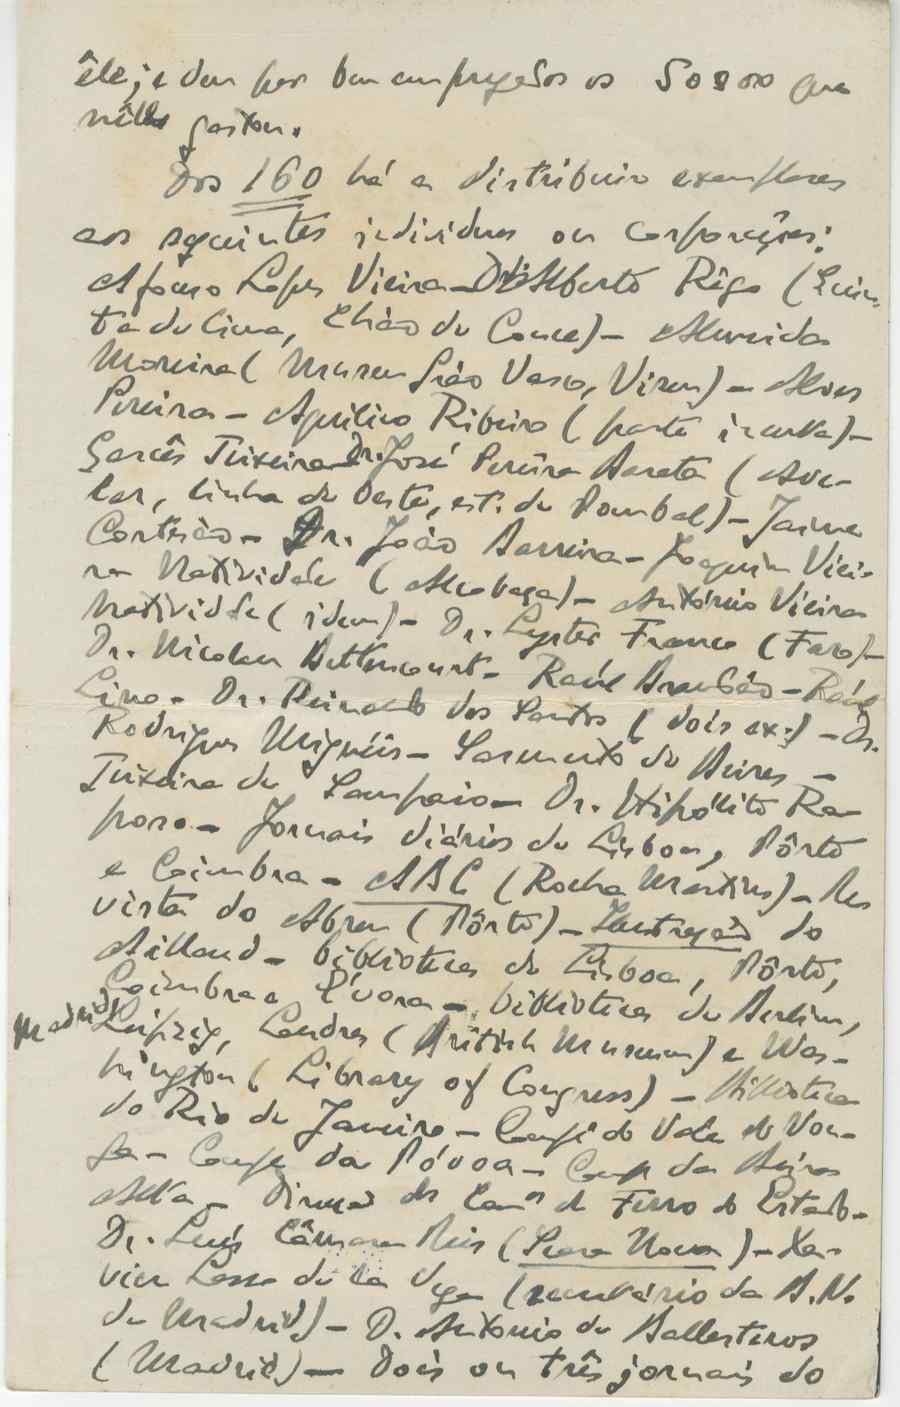 êle; e dou por bem empregados os 50$00 que
nêles gastou.
Dos 160 há a distribuir exemplares
aos seguintes individuos ou corporações:
Afonso Lopes Vieira - Dr. Alberto Rêgo (Quin-
ta de Cima, Chão de Couce) - Almeida
Moreira (Museu Grão Vasco, Viseu) - Alves
Pereira - Aquilino Ribeiro (parte incerta) -
Garcês Teixeira - Dr. José Pereira Barata (Ave-
lar, linha de Oeste, est. de Pombal) - Jaime
Cortesão - Dr. João Barreira - Joaquim Viei-
ra Natividade (Alcobaça) - António Vieira
Natividade (idem) - Dr. Lyster Franco (Faro) -
Dr. Nicolau Bettencourt - Raúl Brandão - Raúl
Lino - Dr. Reinaldo dos Santos (dois ex.) - Dr.
Rodrigues Miguéis - Sarmento de Beires -
Teixeira de Sampaio - Dr. Hipólito Ra-
poso - Jornais diários de Lisboa, Pôrto
e Coimbra - ABC (Rocha Martins) - Re
vista do Abreu (Pôrto) - Ilustração do
Aillaud - bibliotecas de Lisboa, Pôrto,
Coimbra e Évora - bibliotecas de Berlim,
Madrid, Leipzig, Londres (British Museum) e Was-
hington (Library of Congress) - Biblioteca
do Rio de Janeiro - Comp. do Vale do Vou-
ga - Comp. da Póvoa - Comp. da Beira
Alta - Dirеção dos Cam.os de Ferro do Estado -
Dr. Luís Câmara Reis (Seara Nova) - Xa-
vier Lasso de la Vega (secretário da B. N.
de Madrid) - D. Antonio de Ballesteros
(Madrid) - Dois ou três jornais do